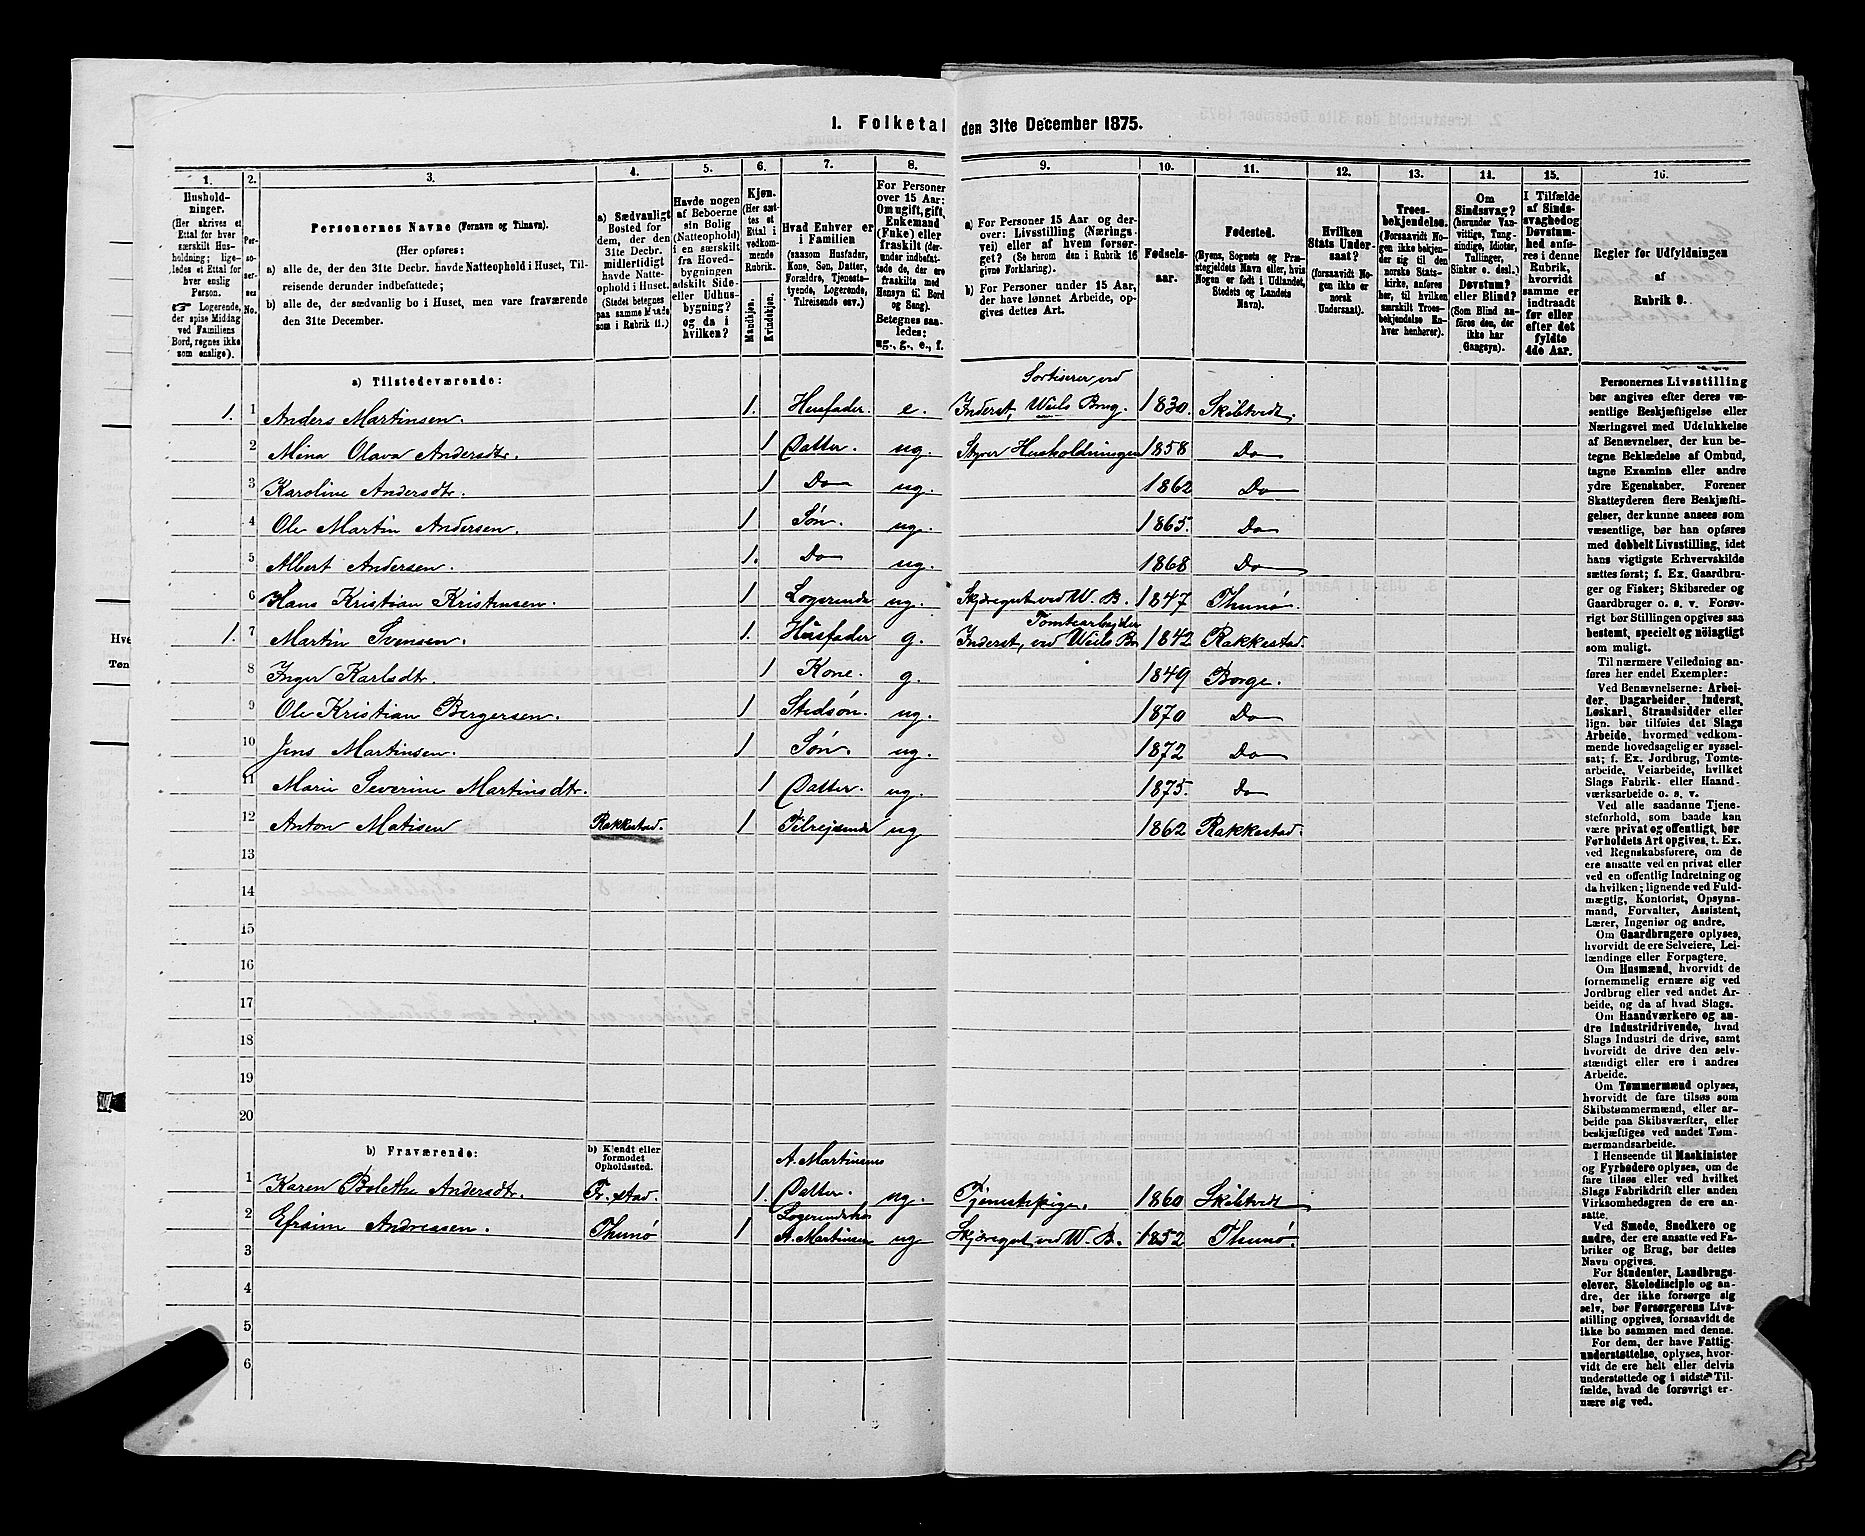 1. Folketal den 31te December 1875.
1. 2. 3. 4. 5. 6. 7. 8. 9. 10. 11. 12. 13. 14. 15. 16.
Husholdninger.
(Her skrives et
Ettal for hver
særskilt Husholdning;
ligeledes et Ettal for
hver enslig
Person.
☞ Logerende,
der spise Middag
ved Familiens
Bord, regnes ikke
som enslige).
Personernes No.
Personernes Navne (Fornavn og Tilnavn).
(Her opføres:
a) alle de, der den 31te Decbr. havde Natteophold i Huset, Tilreisende
derunder indbefattede;
b) alle de, der sædvanlig bo i Huset, men vare fraværende
den 31te December.
a) Sædvanligt
Bosted for
dem, der den
31te Decbr.
midlertidigt
havde Natteophold
i Huset.
(Stedet betegnes
paa samme Maade
som i Rubrik 11.)
Havde nogen
af Beboerne
sin Bolig
(Natteophold)
i en særskilt
fra Hovedbygningen
adskilt Side- eller Udhusbygning?
og da i
hvilken?
Kjøn.
(Her sættes et
Ettal i
vedkommende
Rubrik.
Mandkjøn. Kvindekjøn.
Hvad Enhver er
i Familien
(saasom Husfader,
Kone, Søn, Datter,
Forældre, Tjenestetyende,
Logerende,
Tilreisende osv.)
For Personer
over 15 Aar:
Om ugift, gift,
Enkemand
(Enke) eller
fraskilt (derunder
indbefattede de, der ere
fraskilte med
Hensyn til Bord
og Seng).
Betegnes saaledes:
ug., g., e., f.
a) For Personer 15 Aar og derover:
Livsstilling (Næringsvei)
eller af hvem forsørget?
(Se herom den i Rubrik 16
givne Forklaring).
b) For Personer under 15 Aar,
der have lønnet Arbeide, opgives
dettes Art.
Fødselsaar.
Fødested.
(Byens, Sognets og Præstegjeldets
Navn eller, hvis
Nogen er født i Udlandet,
Stedets og Landets
Navn).
Hvilken
Stats Undersaat?
(forsaavidt Nogen
ikke er
norsk
Undersaat).
Troesbekjendelse.
(Forsaavidt Nogen
ikke bekjender
sig til den
norske Statskirke,
anføres
her, til hvilken
særskilt Troesbekjendelse
Enhver
henhører).
Om
Sindssvag?
(herunder Vanvittige,
Tungsindige,
Idioter,
Tullinger,
Sinker o. desl.)
Døvstum?
eller Blind?
(Som Blind anføres
den, der
ikke har
Gangsyn).
I Tilfælde
af Sindssvaghed og
Døvstumhed
anføres
i denne
Rubrik,
hvorvidt
samme er
indtraadt
før eller
efter det
fyldte
4de Aar.
Regler for Udfyldningen
af
Rubrik 9.
a) Tilstedeværende:
1. 1 Anders Martinsen. 1. Husfader. e. Inderst, Sortiserer ved Weels Brug. 1830. Skibtvedt.
2 Mina Olava Andersdtr. 1 Datter. ug. Styrer Husholdningen 1858 Do
3 Karoline Andersdtr. 1 Do ug. 1862 Do
4 Ole Martin Andersen. 1 Søn. ug. 1865. Do
5 Albert Andersen. 1. Do ug. 1868 Do
6 Hans Kristian Kristensen. 1 Logerende ug. Skjæregut ved W. B. 1847 Thunø
1. 7 Martin Svensen. 1. Husfader g. Inderst, Tomtearbeider ved Weels Br 1842 Rakkestad.
8 Inger Karlsdtr. 1 Kone. g. 1849 Borge.
9 Ole Kristian Bergersen. 1 Stedsøn. ug. 1870 Do
10 Jens Martinsen. 1 Søn. ug. 1872 Do
11 Marie Severine Martinsdtr. 1 Datter. ug. 1875. Do
12 Anton Matisen Rakkestad. 1 Tilrejsende ug 1862 Rakkestad.
13
14
15
16
17
18
19
20
b) Fraværende:
b) Kjendt eller
formodet
Opholdssted.
1 Karen Bolethe Andersdtr. Fr.stad. 1. A. Martinsens Datter. ug. Tjenestepige. 1860 Skibtvedt
2 Efraim Andreassen. Thunø 1 Logerende hos A. Martinsen ug Skjæregut ved W. B. 1852 Thunø.
3
4
5
6
Personernes Livsstilling
bør angives efter deres væsentlige
Beskjæftigelse eller
Næringsvei med Udelukkelse
af Benævnelser, der kun betegne
Beklædelse af Ombud,
tagne Examina eller andre
ydre Egenskaber. Forener
Skatteyderen flere Beskjæftigelser,
der kunne ansees som
væsentlige, bør han opføres
med dobbelt Livsstilling, idet
hans vigtigste Erhvervskilde
sættes først; f. Ex. Gaardbruger
og Fisker; Skibsreder og
Gaardbruger o. s. v. Forøvrigt
bør Stillingen opgives saa
bestemt, specielt og nöiagtigt
som muligt.
Til nærmere Veiledning anføres
her endel Exempler:
Ved Benævnelserne: Arbeider,
Dagarbeider, Inderst,
Løskarl, Strandsidder eller
lign. bør tilføies det Slags
Arbeide, hvormed vedkommende
hovedsagelig er sysselsat;
f. Ex. Jordbrug, Tomtearbeide,
Veiarbeide, hvilket
Slags Fabrik- eller Haandværksarbeide
o. s. v.
Ved alle saadanne Tjenesteforhold,
som baade kan
være privat og offentlig, bør
Forholdets Art opgives, t. Ex.
ved Regnskabsførere, om de
ere ansatte ved en privat eller
ved en offentlig Indretning og
da hvilken; lignende ved Fuldmægtig,
Kontorist, Opsynsmand,
Forvalter, Assistent,
Lærer, Ingeniør og andre.
Om Gaardbrugere oplyses,
hvorvidt de ere Selveiere, Leilændinge
eller Forpagtere.
Om Husmænd, hvorvidt de
fornemmelig ernære sig ved
Jordbrug eller ved andet Arbeide,
og da af hvad Slags.
Om Haandværkere og andre
Industridrivende, hvad
Slags Industri de drive, samt
hvorvidt de drive den selvstændigt
eller ere i andres
Arbeide.
Om Tømmermænd oplyses,
hvorvidt de fare tilsøs som
Skibstømmermænd, eller arbeide
paa Skibsværfter, eller
beskjæftiges ved andet Tømmermandsarbeide.
I Henseende til Maskinister
og Fyrbødere oplyses, om de
fare tilsøs eller ved hvilket
Slags Fabrikdrift eller anden
Virksomhedsgren de ere ansatte.
Ved Smede, Snedkere og
andre, der ere ansatte ved Fabriker
og Brug, bør dettes
Navn opgives.
For Studenter, Landbrugselever,
Skoledisciple og andre,
der ikke forsørge sig
selv, bør Forsørgerens Livsstilling
opgives, forsaavidt de
ikke bo sammen med denne.
For dem, der have Fattigunderstøttelse,
oplyses, hvorvidt
de ere helt eller delvis
understøttede og i sidste Tilfælde,
hvad de forøvrigt ernære
sig ved.